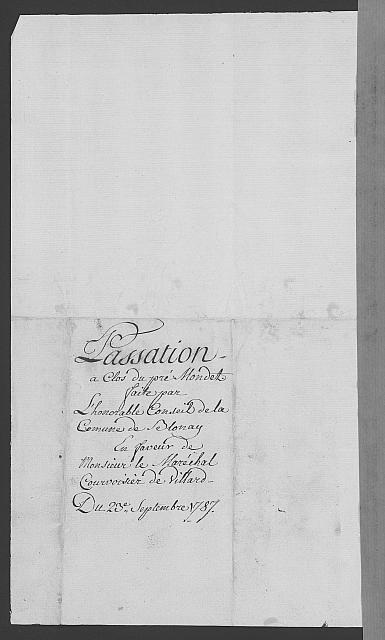 Passation
a Clos du pré Mondet
faite par
L'honorable Conseil de la
Comune de Blonay
En faveur de
Monsieur le Maréchal
Courvoisier de Villard
Du 23e Septembre 1787.